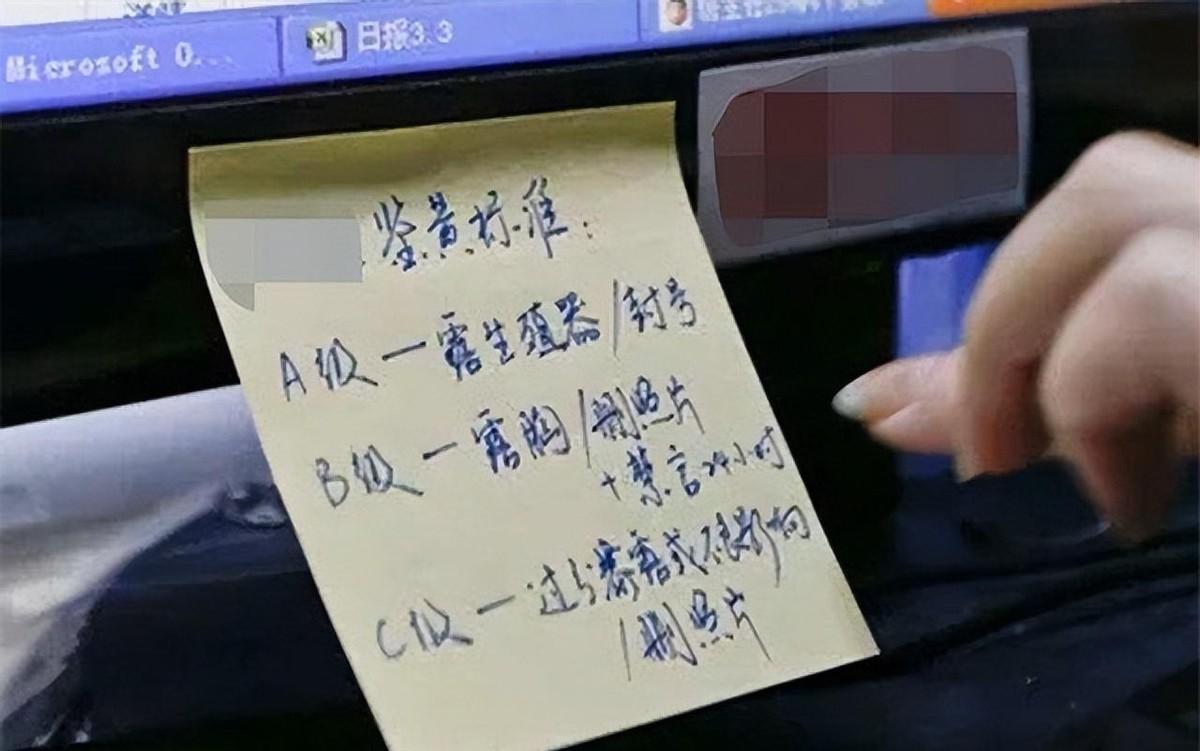 Microsoft O...
日报3.3
鉴黄标准:
A级一露生殖器/封号
B级一露胸/删照片
+禁言24小时
C级一过于暴露或不良影响
/删照片